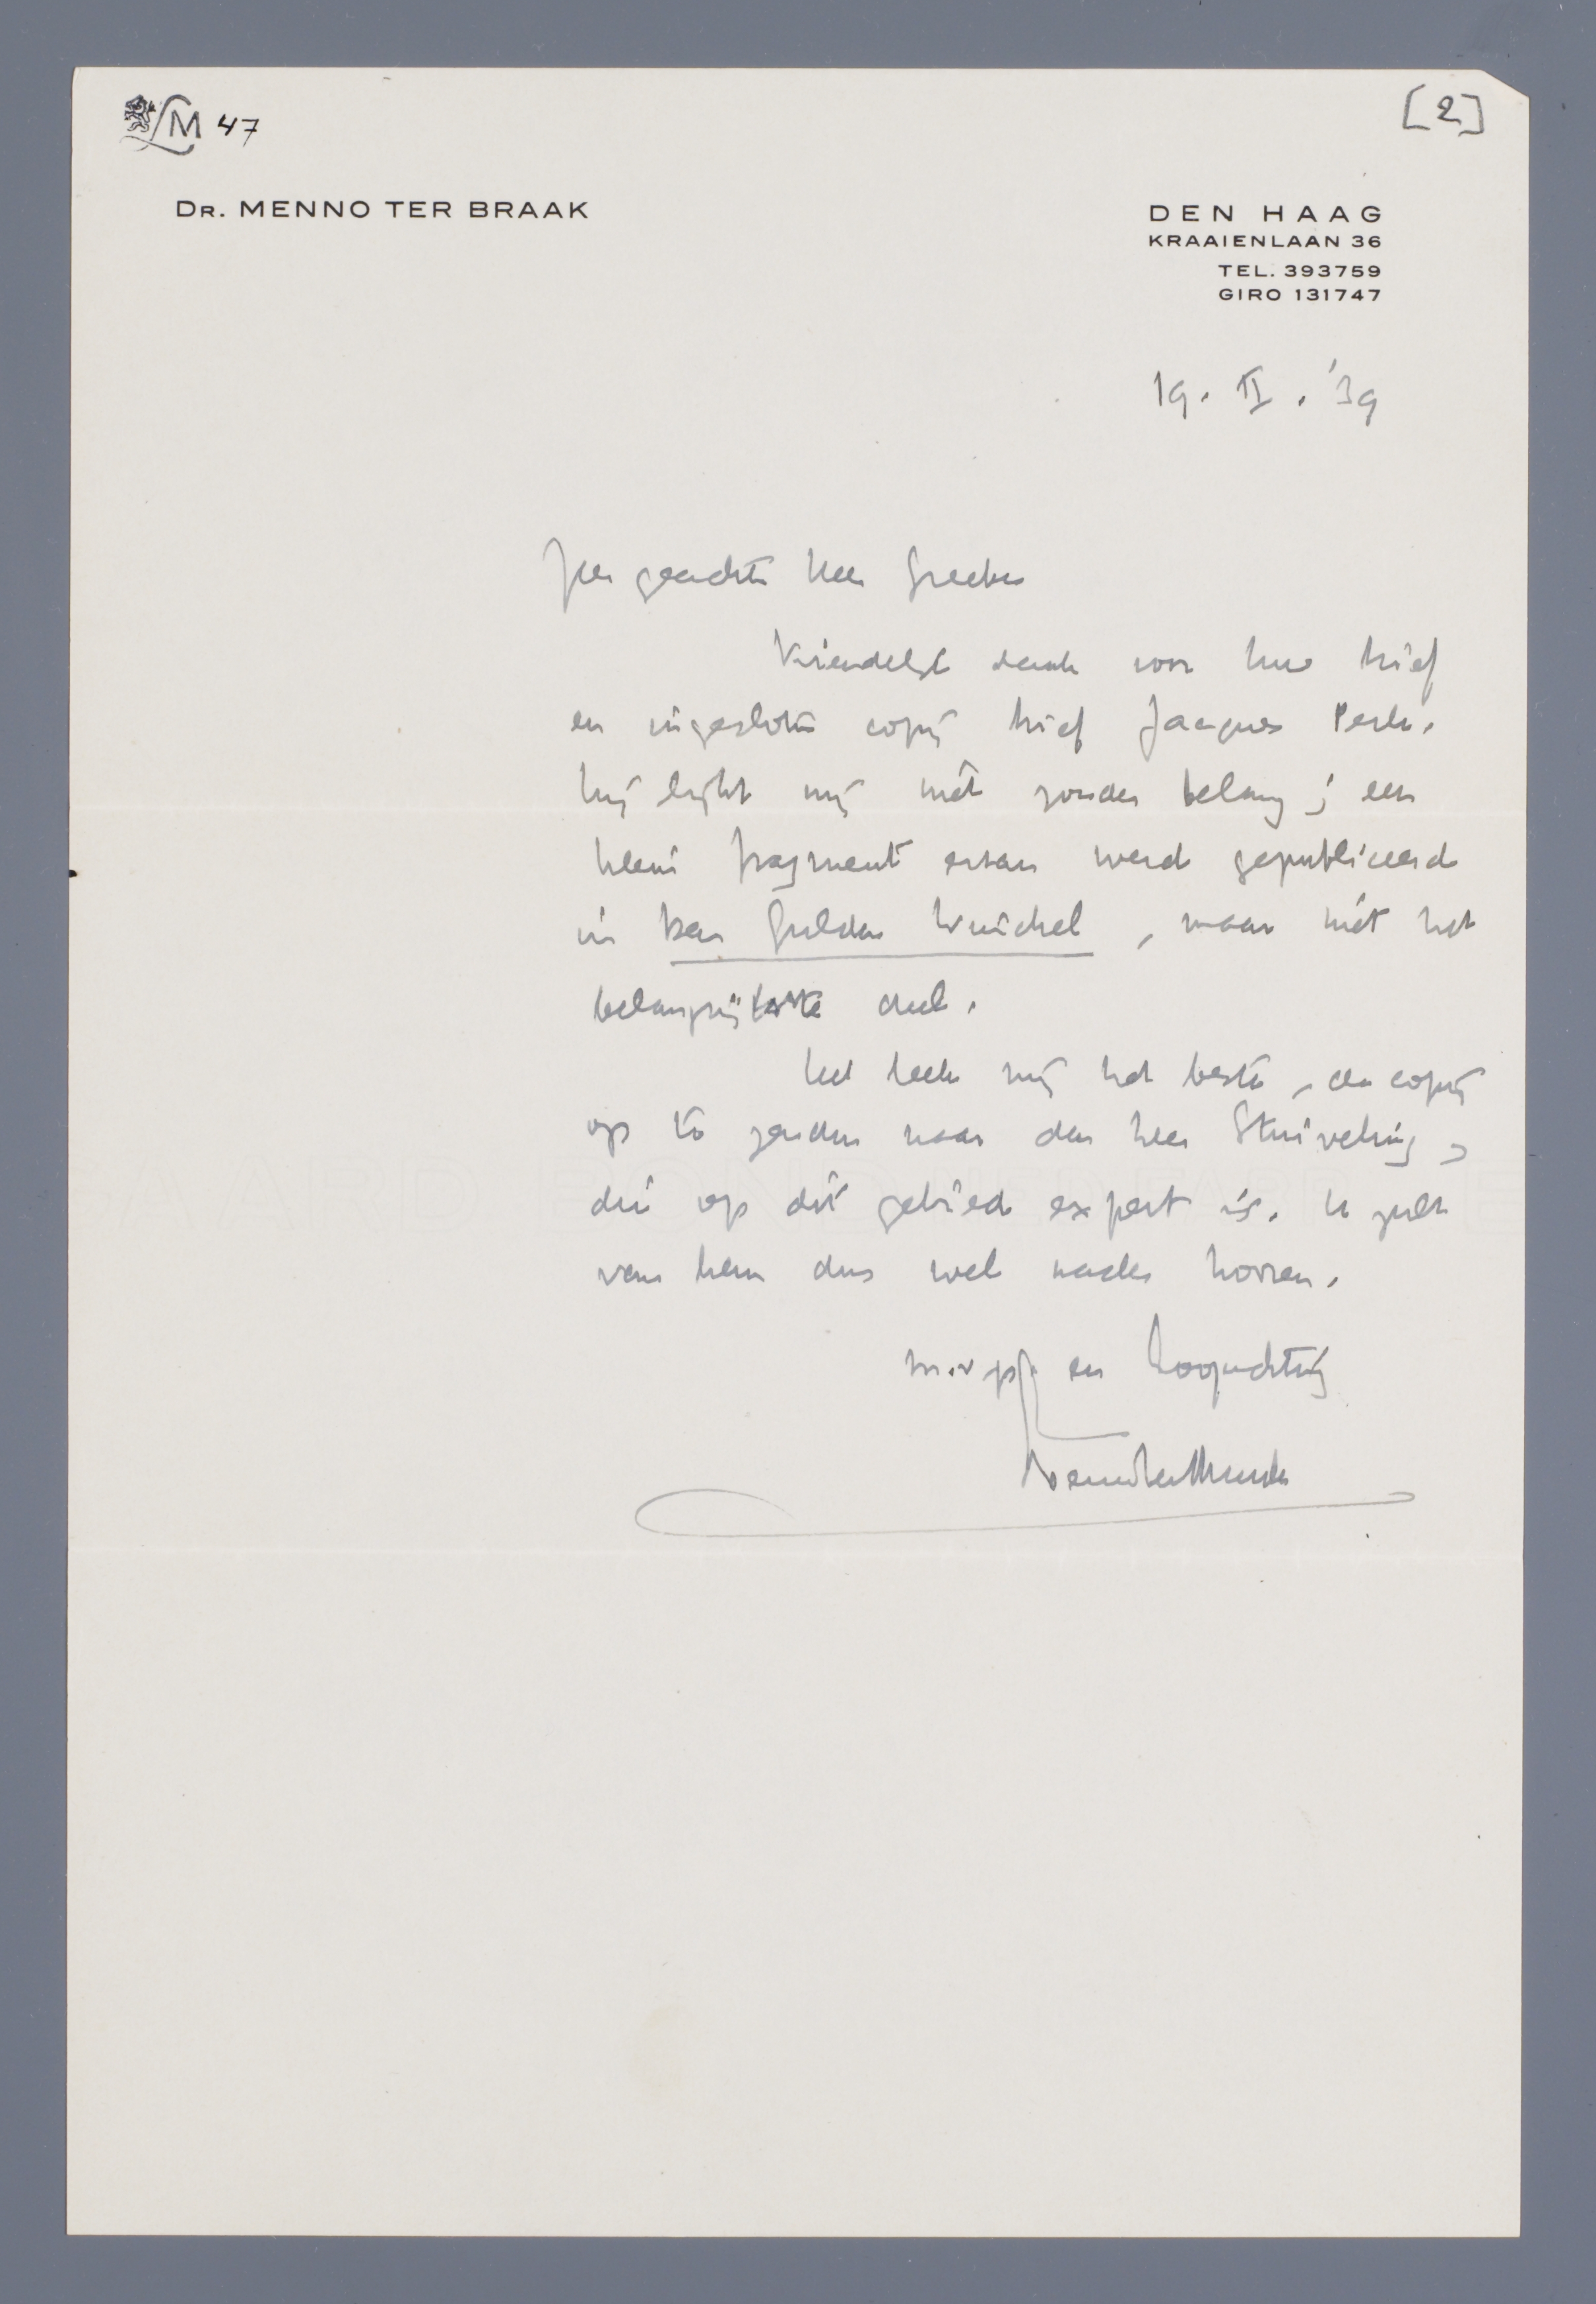 LM 47
[2]
Dr. MENNO TER BRAAK
DEN HAAG
KRAAIENLAAN 36
TEL. 393759
GIRO 131747
19. II. '39
Zeer geachte Heer Greebe
Vriendelijk dank voor Uw brief
en ingesloten copij brief Jacques Perk.
Hij lijkt mij niet zonder belang; een
klein fragment ervan werd gepubliceerd
in Een Gulden Winckel, maar niet het
belangrijkste deel.
Het leek mij het beste, de copij
op te zenden naar den heer Stuiveling,
die op dit gebied expert is. U zult
van hem dus wel nader hooren.
m.v.gr. en hoogachting
Menno ter Braak